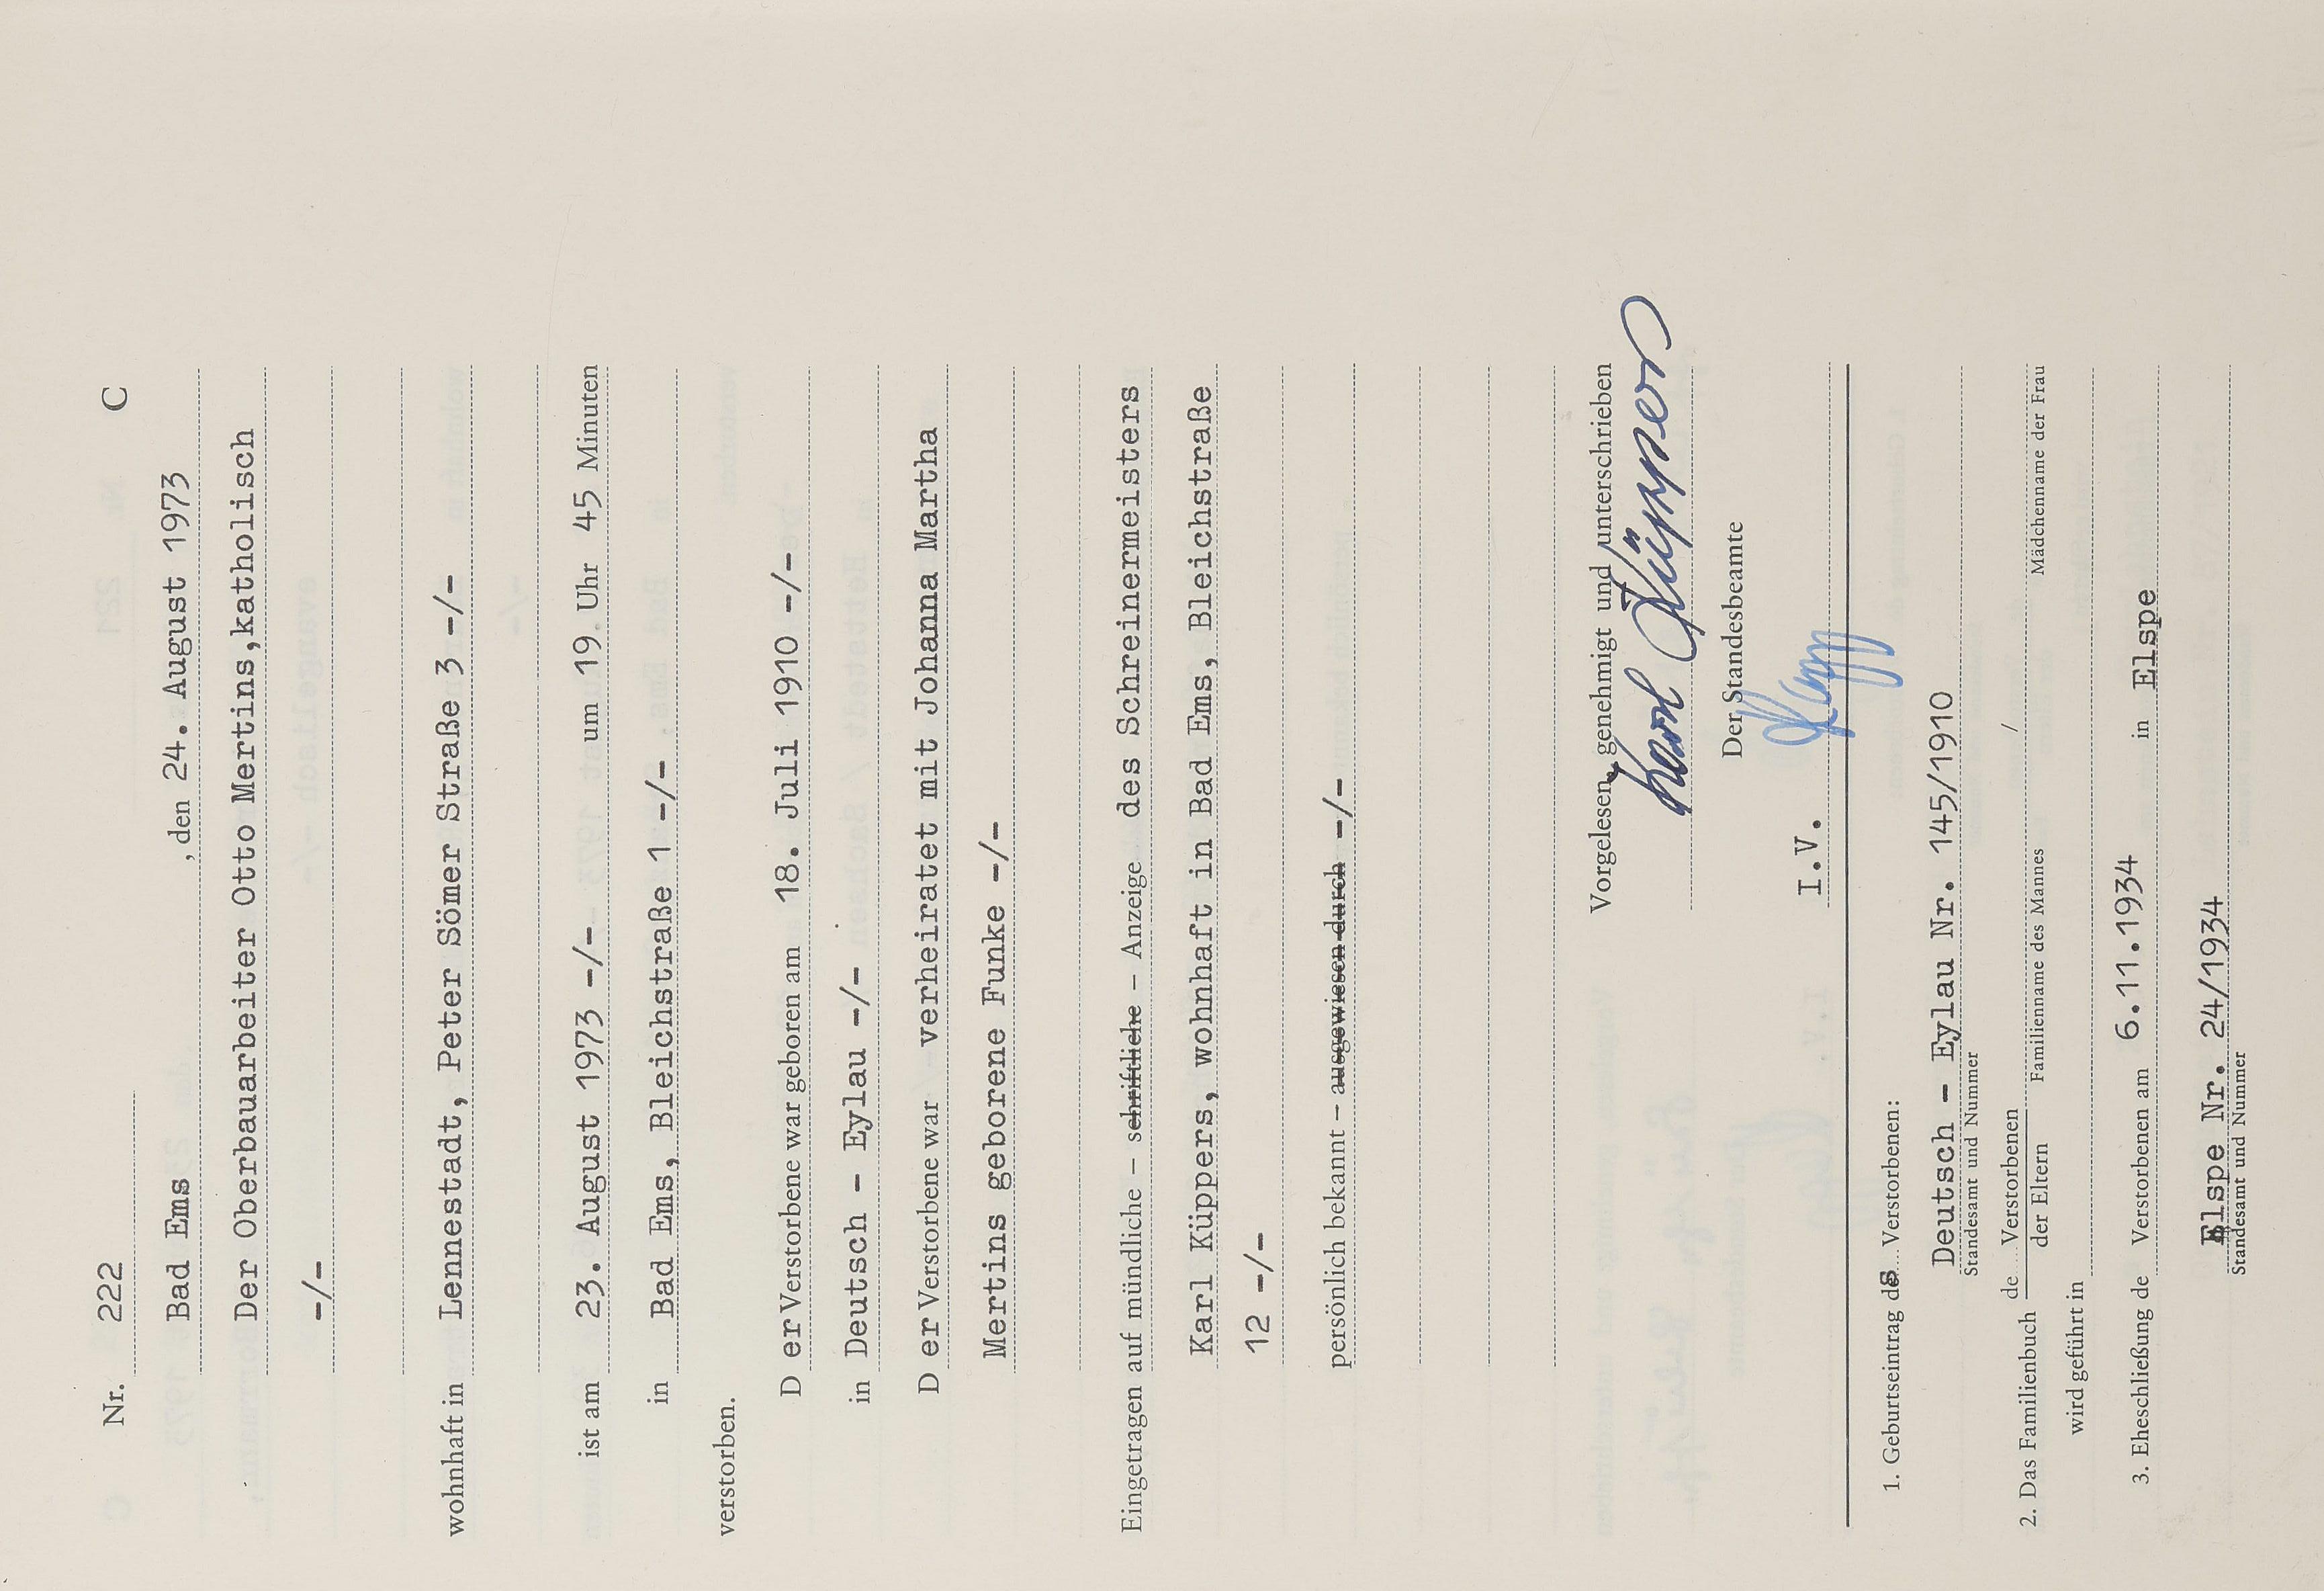 Nr. 222 C
Bad Ems , den 24. August 1973
Der Oberbauarbeiter Otto Mertins,katholisch
-/-
wohnhaft in Lennestadt, Peter Sömer Straße 3 -/-
ist am 23. August 1973 -/- um 19. Uhr 45 Minuten
in Bad Ems, Bleichstraße 1 -/-
verstorben.
D er Verstorbene war geboren am 18. Juli 1910 -/-
in Deutsch - Eylau -/-
D er Verstorbene war verheiratet mit Johanna Martha
Mertins geborene Funke -/-
Eingetragen auf mündliche – schriftliche – Anzeige des Schreinermeisters
Karl Küppers, wohnhaft in Bad Ems, Bleichstraße
12 -/-
persönlich bekannt – ausgewiesen durch -/-
Vorgelesen, genehmigt und unterschrieben
Karl Küppers
Der Standesbeamte
I.V.
1. Geburtseintrag des Verstorbenen:
Deutsch - Eylau Nr. 145/1910
Standesamt und Nummer
2. Das Familienbuch de Verstorbenen / der Eltern /
Familienname des Mannes Mädchenname der Frau
wird geführt in
3. Eheschließung de Verstorbenen am 6.11.1934 in Elspe
Elspe Nr. 24/1934
Standesamt und Nummer